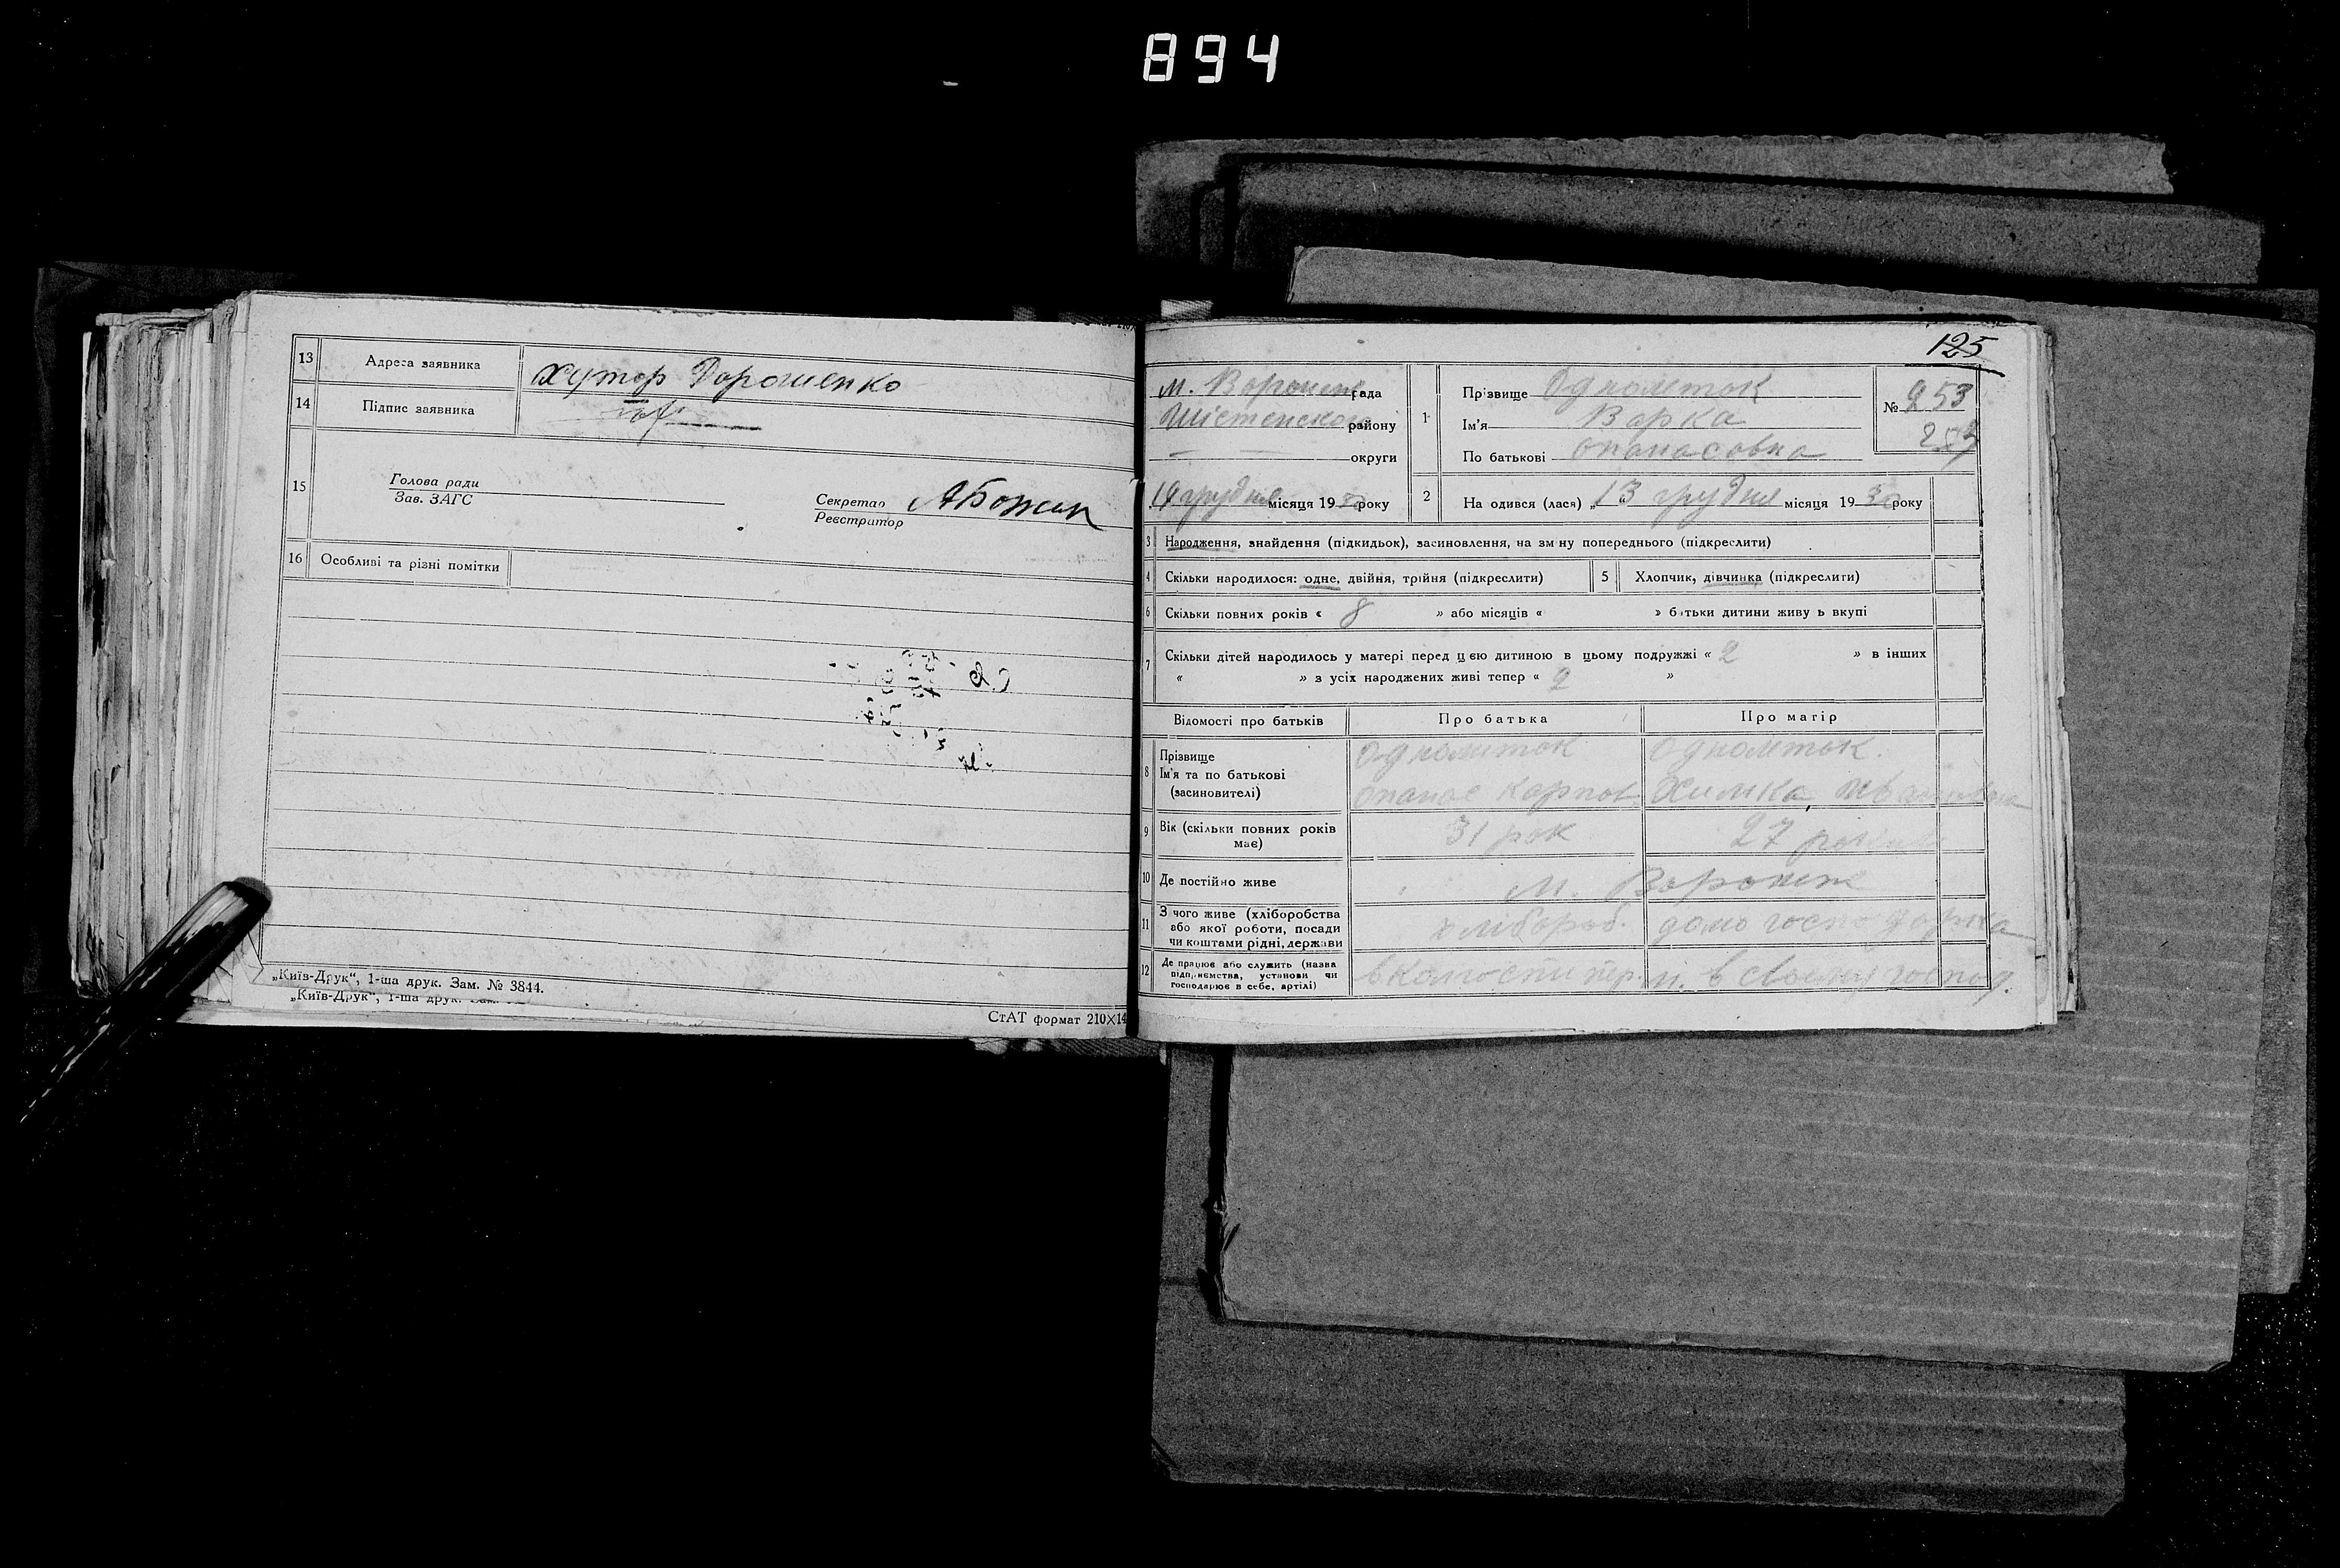 894
13 Адреса заявника хутор Дорошенко
14 Підпис заявника
15 Голова ради
Зав. ЗАГС
Секретар АБожок
Реєстратор
16 Особливі та різні помітки
„Київ-Друк“, 1-ша друк. Зам. № 3844.
„Київ-Друк“, 1-ша друк. Зам.
СтАТ формат 210×14
125
м. Вороніж рада
Шістенского району
— — округи
19 грудня місяця 1930 року
1 Прізвище Одноліток
Ім'я Варка
По батькові опанасовна
№ 253
253
2 На одився (лася) „13 грудня місяця 1930 року
3 Народження, знайдення (підкидьок), засиновлення, на зміну попереднього (підкреслити)
4 Скільки народилося: одне, двійня, трійня (підкреслити) 5 Хлопчик, дівчинка (підкреслити)
6 Скільки повних років « 8 » або місяців « » батьки дитини живу ь вкупі
7 Скільки дітей народилось у матері перед цією дитиною в цьому подружжі « 2 » в інших
« » з усіх народжених живі тепер « 2 »
Відомості про батьків Про батька Про матір
8 Прізвище
Ім'я та по батькові
(засиновителі)
Одноліток
опанас Карпов
Одноліток
Химка
9 Вік (скільки повних років
має)
31 рок 27 років
10 Де постійно живе м. Вороніж
11 З чого живе (хліборобства
або якої роботи, посади
чи коштами рідні, держави
хлібороб. домогосподарка
12 Де працює або служить (назва
підприємства, установи чи
господарює в себе, артілі)
в своему господ.